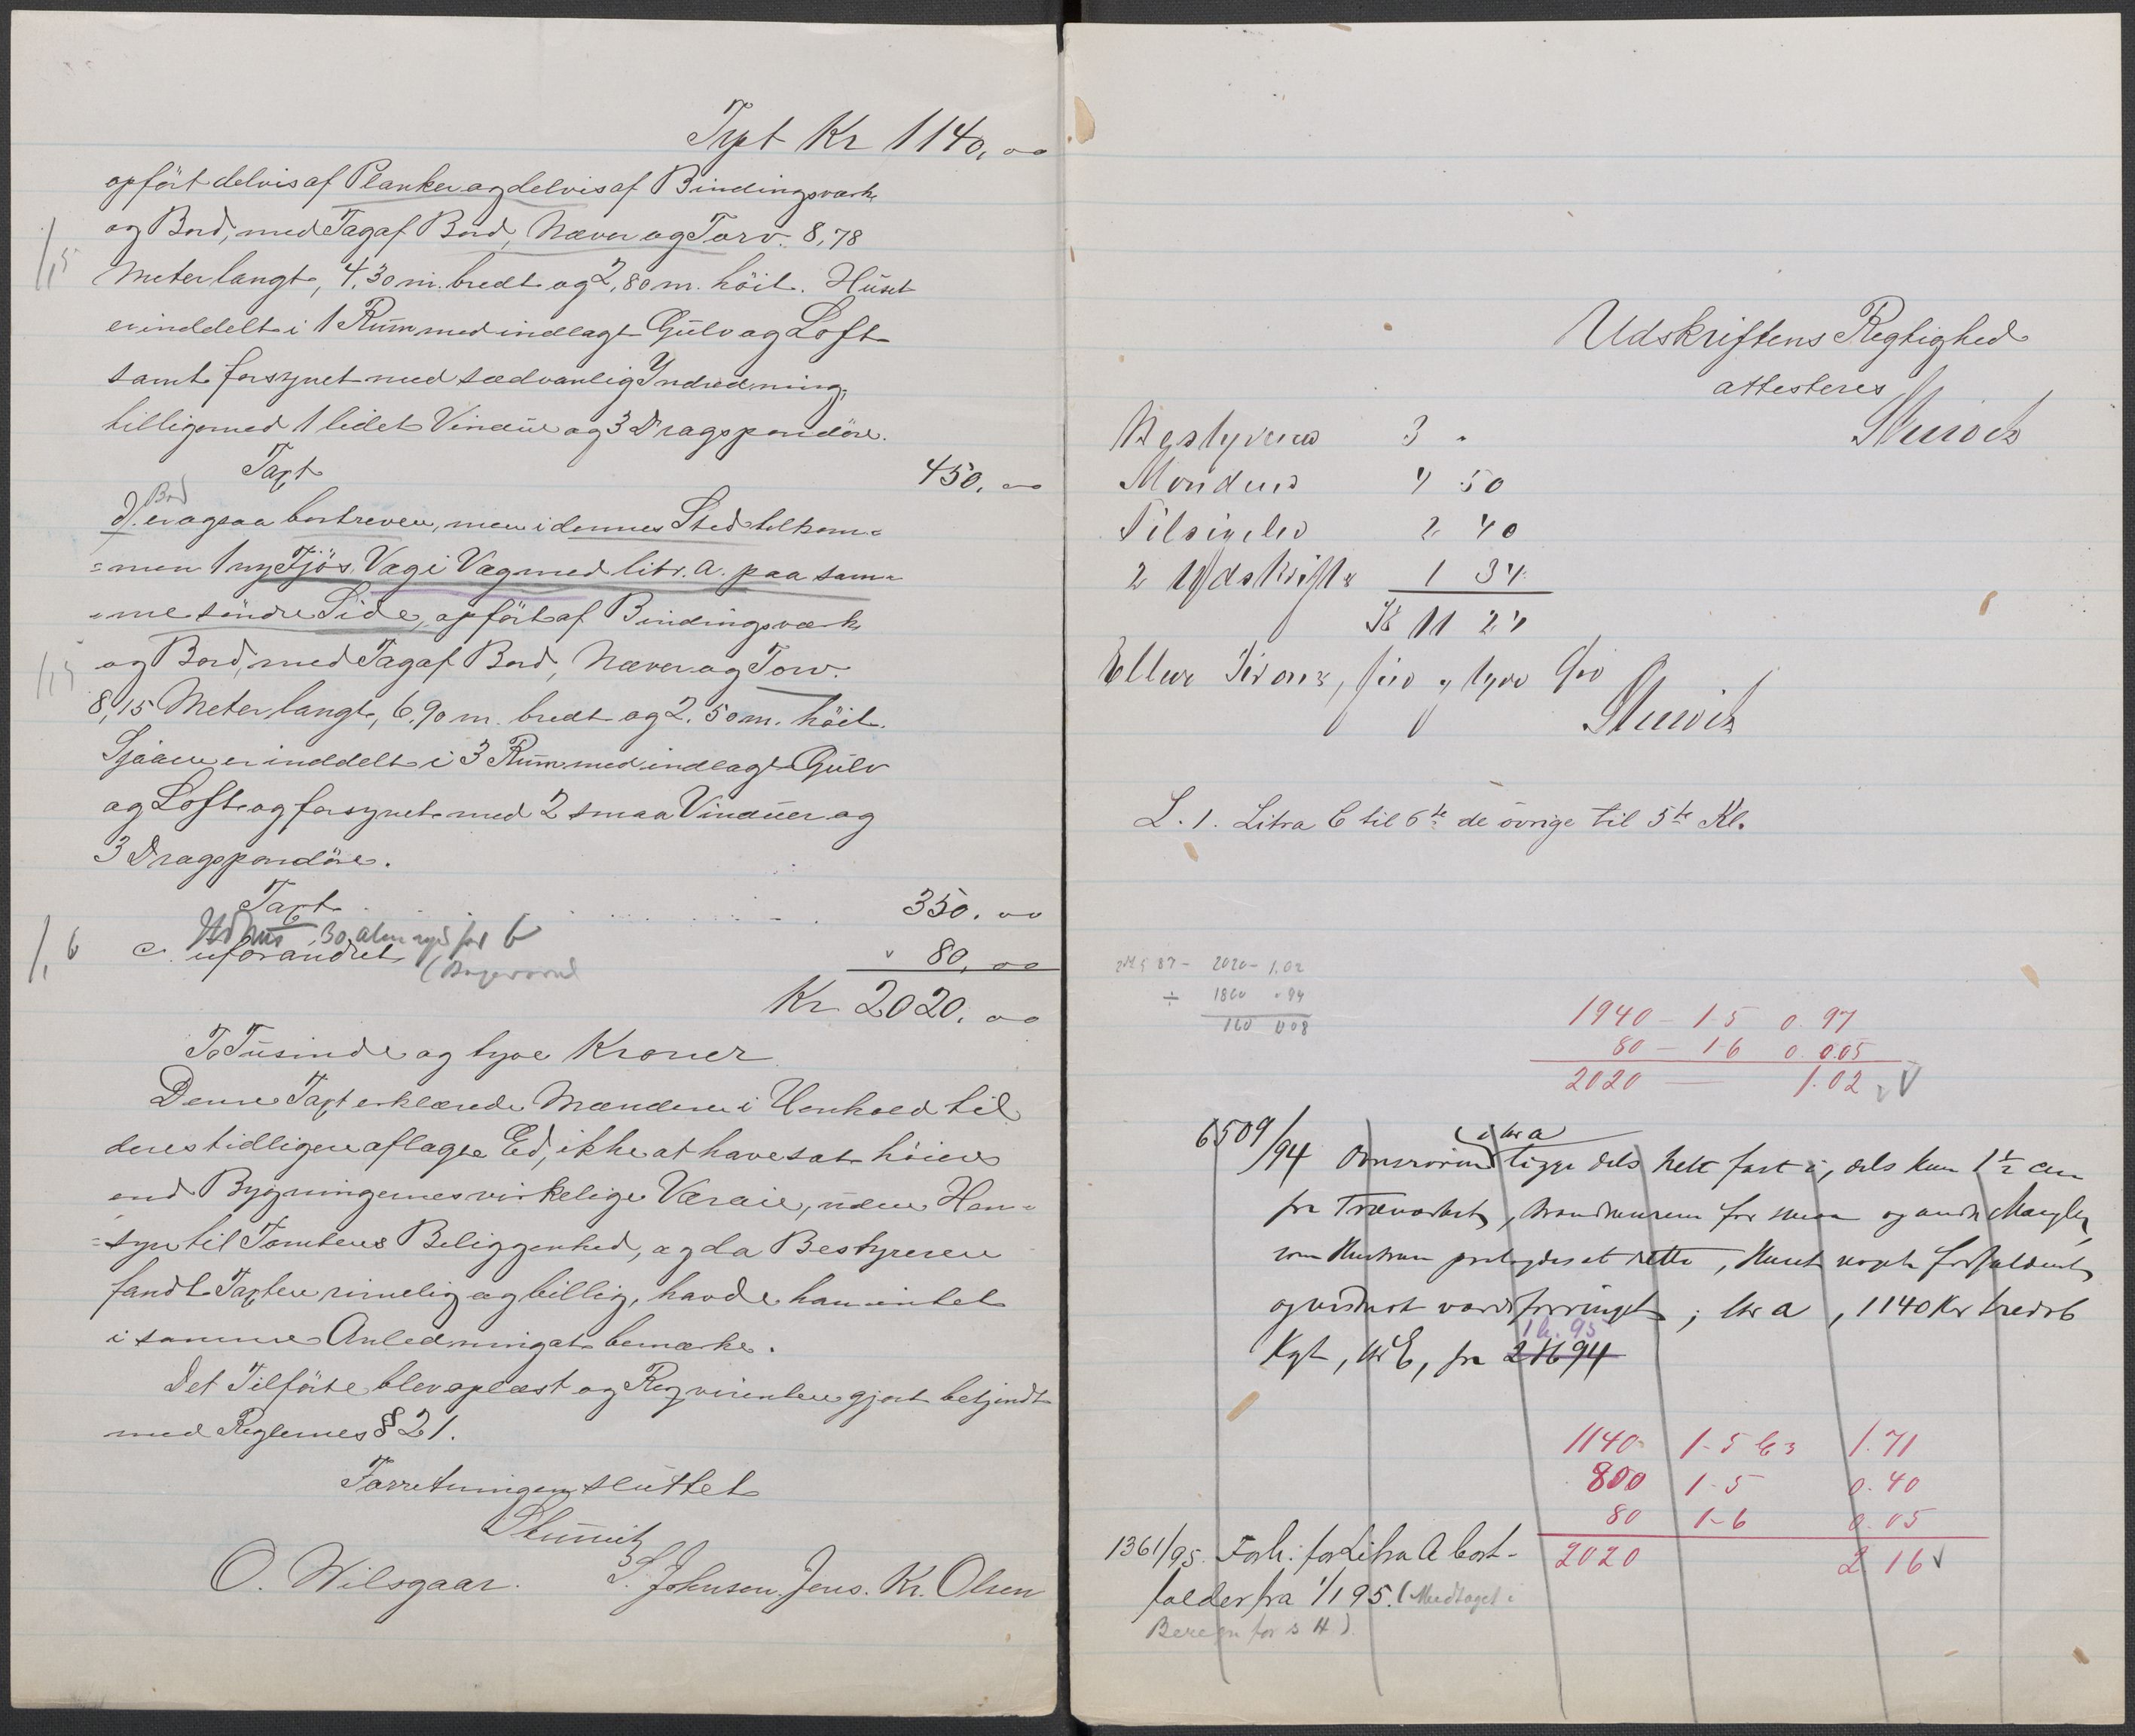 Trpt Kr 1140,00
opført delvis af Planker og delvis af Bindingsværk
og Bord, med Tag af Bord, Næver og Torv. 8,78
1,5
Meter langt, 4,30 m. bredt og 2,80 m. höit. Huset
er inddelt i 1 Rum med indlagt Gulv og Loft
samt forsynet med sædvanlig Indredning,
tilligemed 1 lidet Vindue og 3 Dragspondöre.
Taxt 450,00
Bod
d. er ogsaa bortreven, men i dennes Sted tilkom=
=men 1 ny Fjös, Væg i Væg med litr. a. paa sam=
=me söndre Side, opfört af Bindingsværk
1,5
og Bord, med Tag af Bord, Næver og Torv.
8,15 Meter langt, 6,90 m. bredt og 2,50 m. höit.
Sjaaen er inddelt i 3 Rum med indlagt Gulv
og Loft og forsynet med 2 smaa Vinduer og
3 Dragspondöre.
Taxt 350,00
Udhus 30 alen syd for b
1,6 c. uforandret " 80,00
Kr 2020,00
To Tusinde og tyve Kroner
Denne Taxt erklærede Mændene i Henhold til
deres tidligere aflagte Ed, ikke at have sat höiere
end Bygningernes virkelige Værdie, uden Hen=
=syn til Tomtens Beliggenhed, og da Bestyreren
fandt Taxten rimelig og billig, havde han intet
i samme Anledning at bemærke.
Det Tilförte blev oplæst og Reqvirenten gjort bekjendt
med Reglernes § 21.
Forretningen sluttet
Stuwitz
O. Wilsgaar. S. Johnsen. Jens. Kr. Olsen
Udskriftens Rigtighed
attesteres
Stuwitz
Bestyreren 3 "
Mændene 4 50
Tilsigelse 2 40
2 Udskrifter 1 34
Kr 11 24
Elleve Kroner, fire og tyve Øre
Stuwitz
L. 1. Litra C til 6te de övrige til 5te Kl.
87 - 2020 - 1.02
÷ 1860 " 94
160 0 08
1940 - 1-5 0.97
80 - 1-6 0.0.05
2020 — 1.02
6509/94 Ovnsrörene i litr a ligge dels helt fast i, dels kun 1 1/2 cm
fra Træværket, Brandmuren for smaa og andre Mangler,
som Hustruen paalagdes at rette, Huset noget forfaldent
og vistnok værdiforringet; litr a, 1140 Kr
1/1. 95
fra 2/1 94
1140 1-5 1.71
800 1-5 0.40
80 1-6 0.05
2020 2 16
1361/95. Forh: for Litra A bort-
falder fra 1/1 95. (Medtaget i
Beregn for s H).